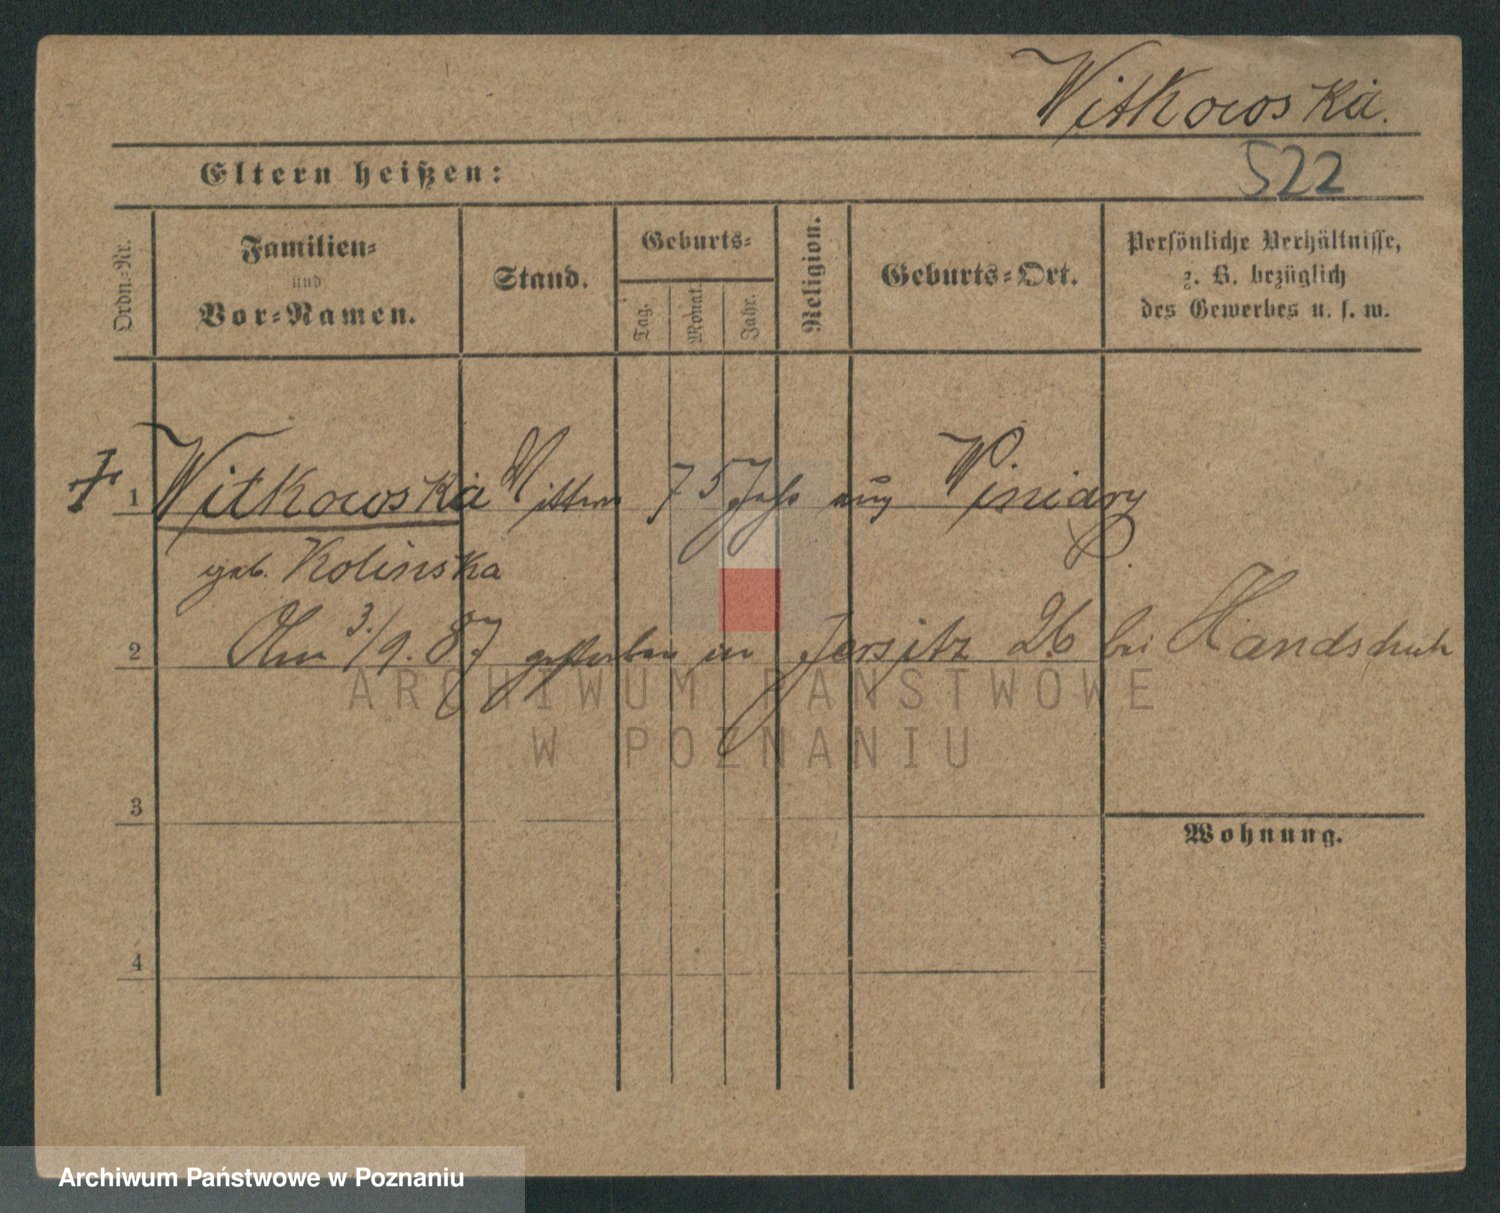 Witkowska.
522
Eltern heißen:
Ordn.-Nr.
Familien-
und
Vor-Namen.
Stand.
Geburts-
Tag.
Monat.
Jahr.
Religion.
Geburts-Ort.
Persönliche Verhältnisse,
z. B. bezüglich
des Gewerbes u. s. w.
1 Witkowska Wittwe 75 Jahr aus Winiary
geb. Kolinska
2 Am 3./9. 87 gestorben in Jersitz 26 bei Handschuh
ARCHIWUM PAŃSTWOWE
W POZNANIU
3
Wohnung.
4
Archiwum Państwowe w Poznaniu